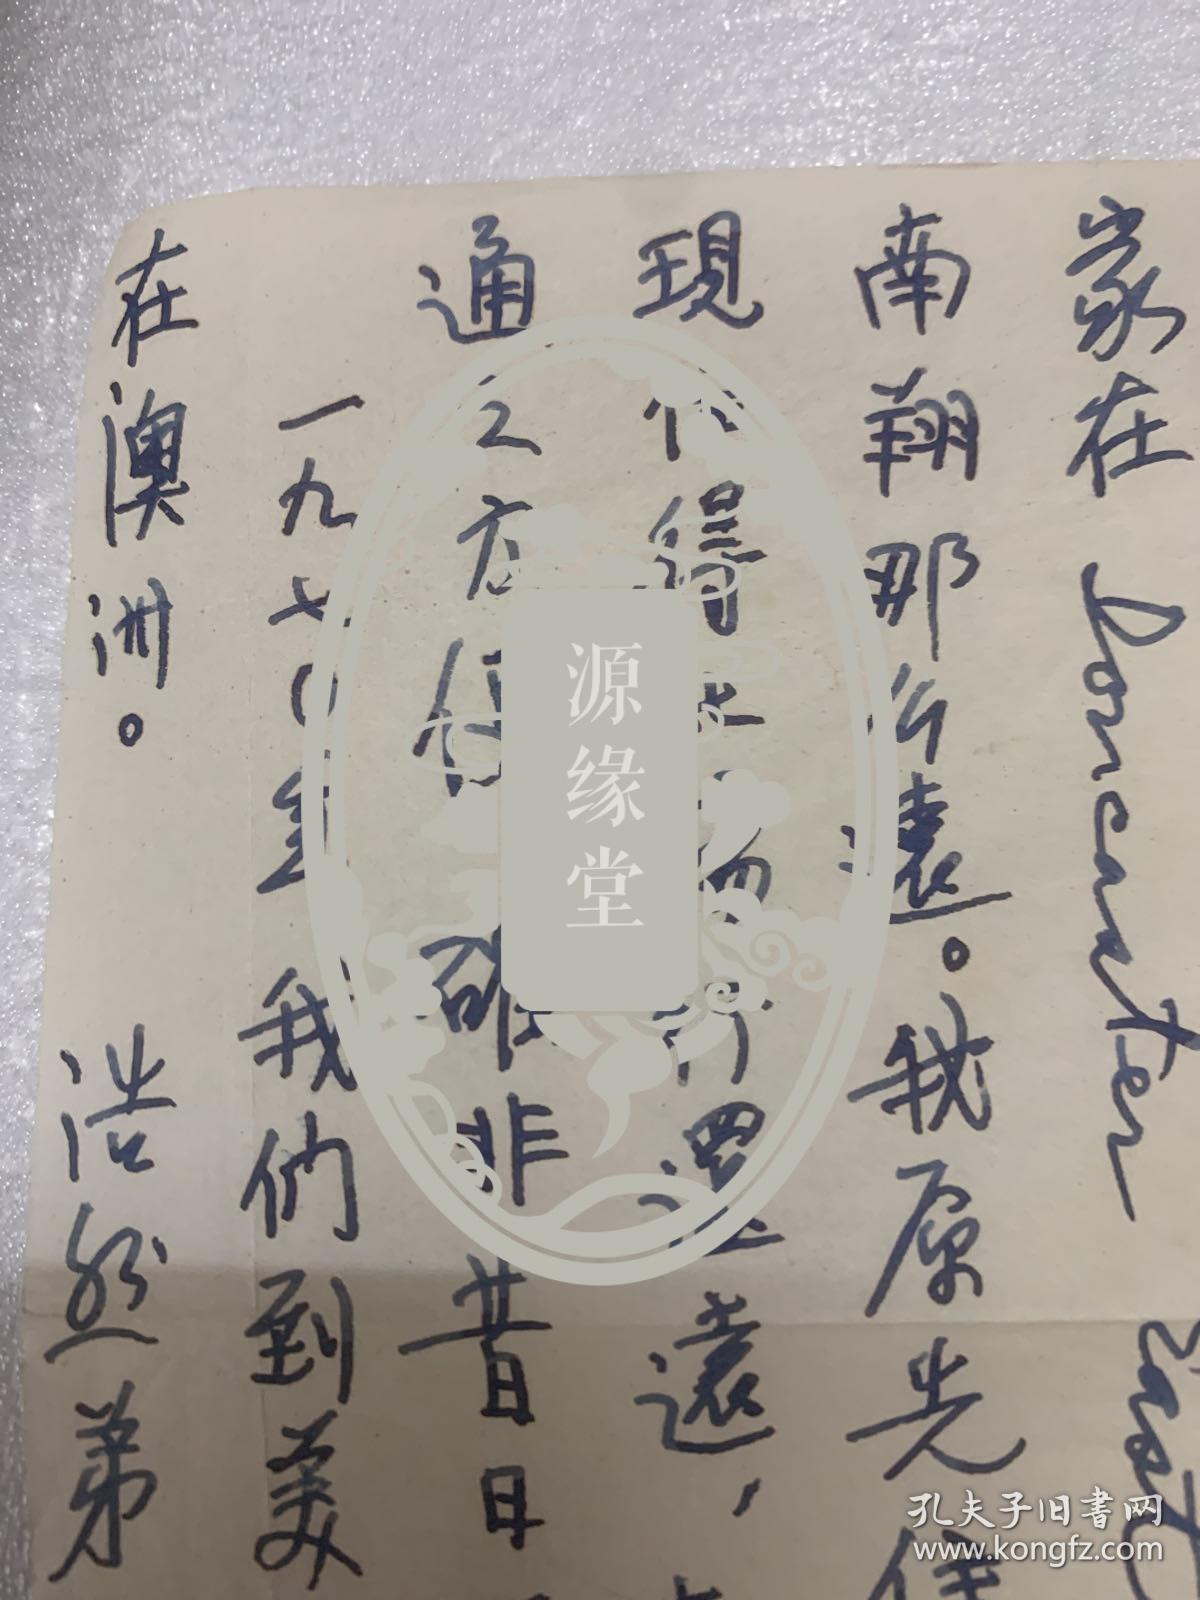 家在 Doncaster East
南翔那么遠。我原先住
現 得 還遠，
通之方便 確非昔日
一九七〇年我們到美
在澳洲。 浩然弟
源缘堂
孔夫子旧书网
www.kongfz.com